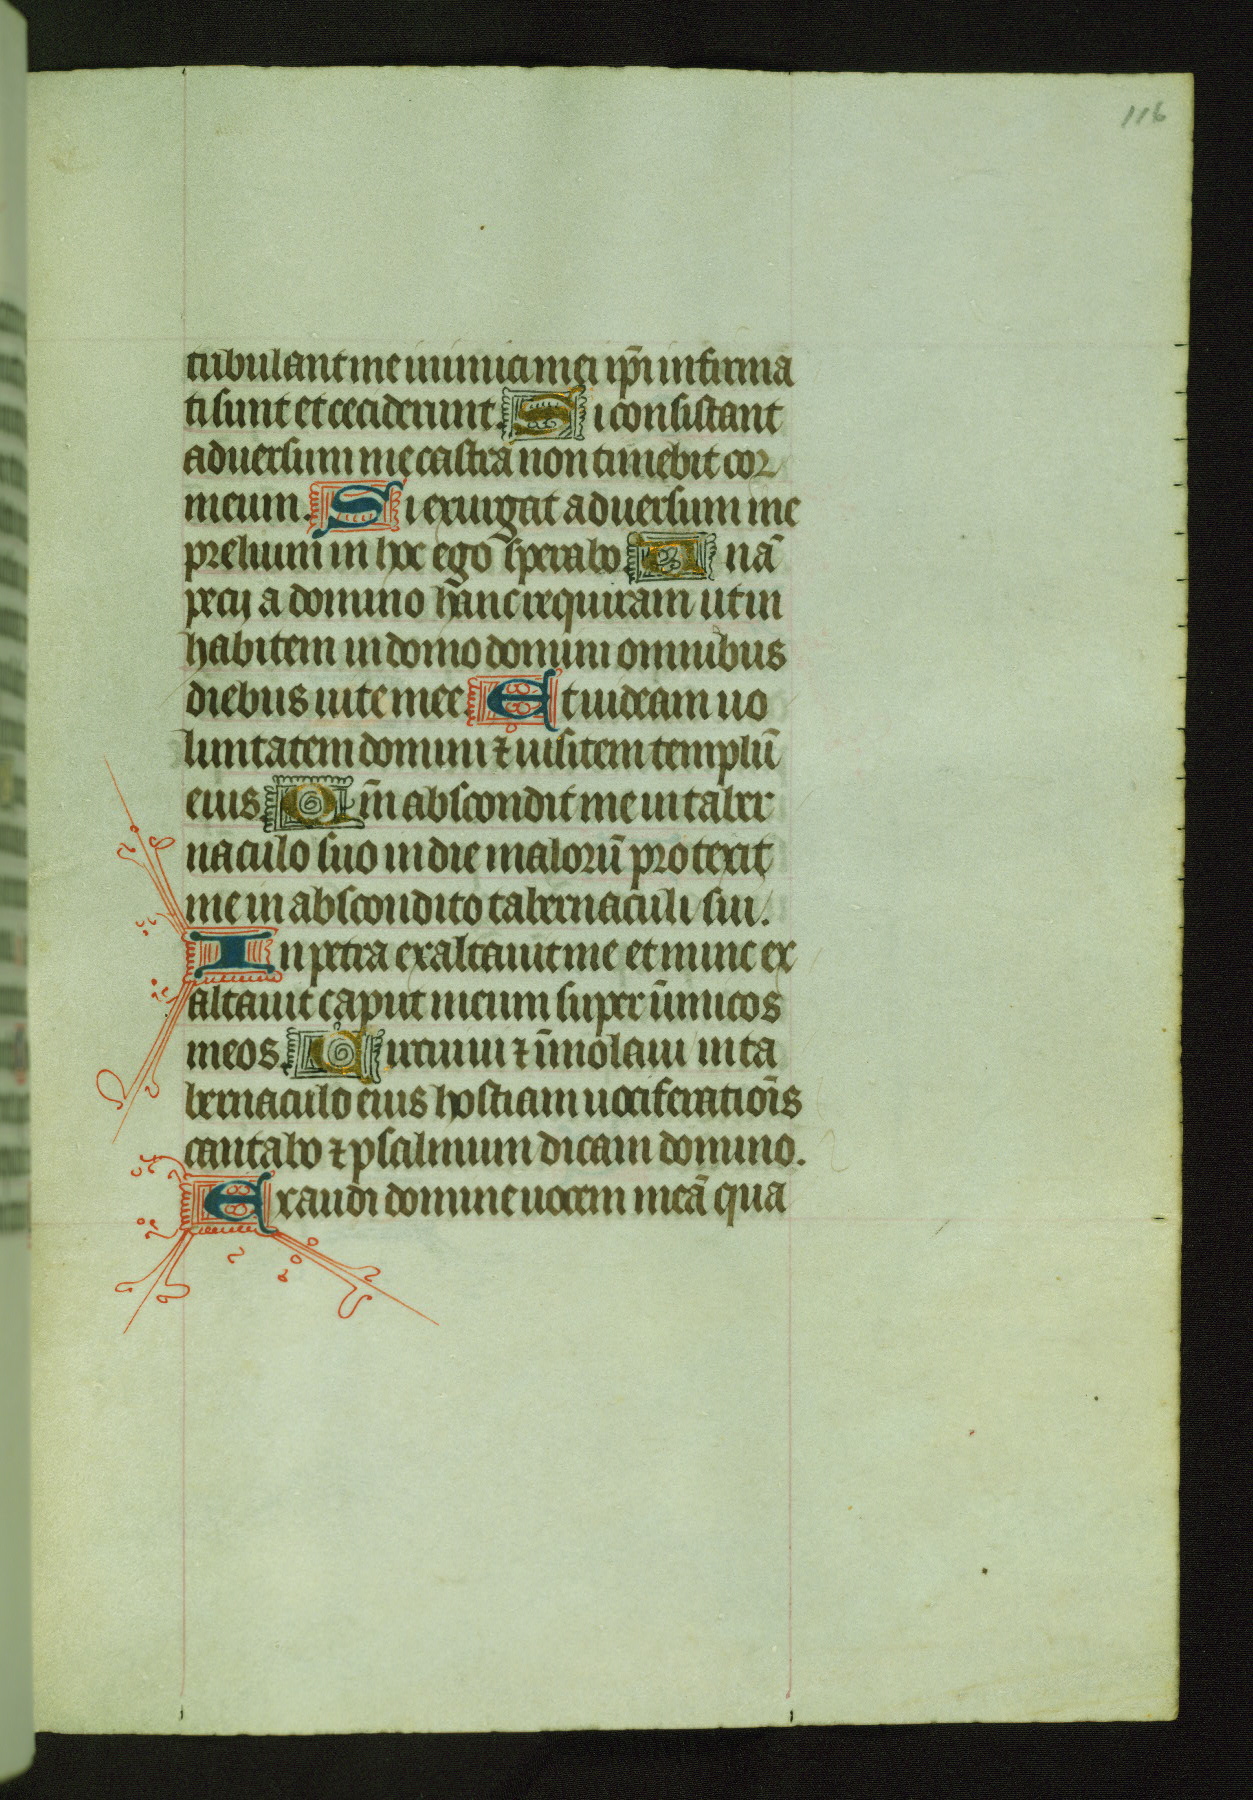 116
tribulant me inimici mei ip̃i infirma
ti sunt et ceciderunt. Si consistant
adversum me castra non timebit cor
meum. Si exurgat adversum me
prelium in hoc ego sꝑerabo. Unã
pecij a domino hanc requiram ut in
habitem in domo domini omnibus
diebus vite mee. Et videam vo
luntatem domini ⁊ visitem templũ
eius. Qm̃ abscondit me in taber
naculo suo in die malorũ protexit
me in abscondito tabernaculi sui.
In petra exaltavit me et nunc ex
altavit caput meum super ĩimicos
meos. Circuivi ⁊ ĩmolavi in ta
bernaculo eius hostiam vociferatiõis
cantabo ⁊ psalmum dicam domino.
Exaudi domine vocem meã qua